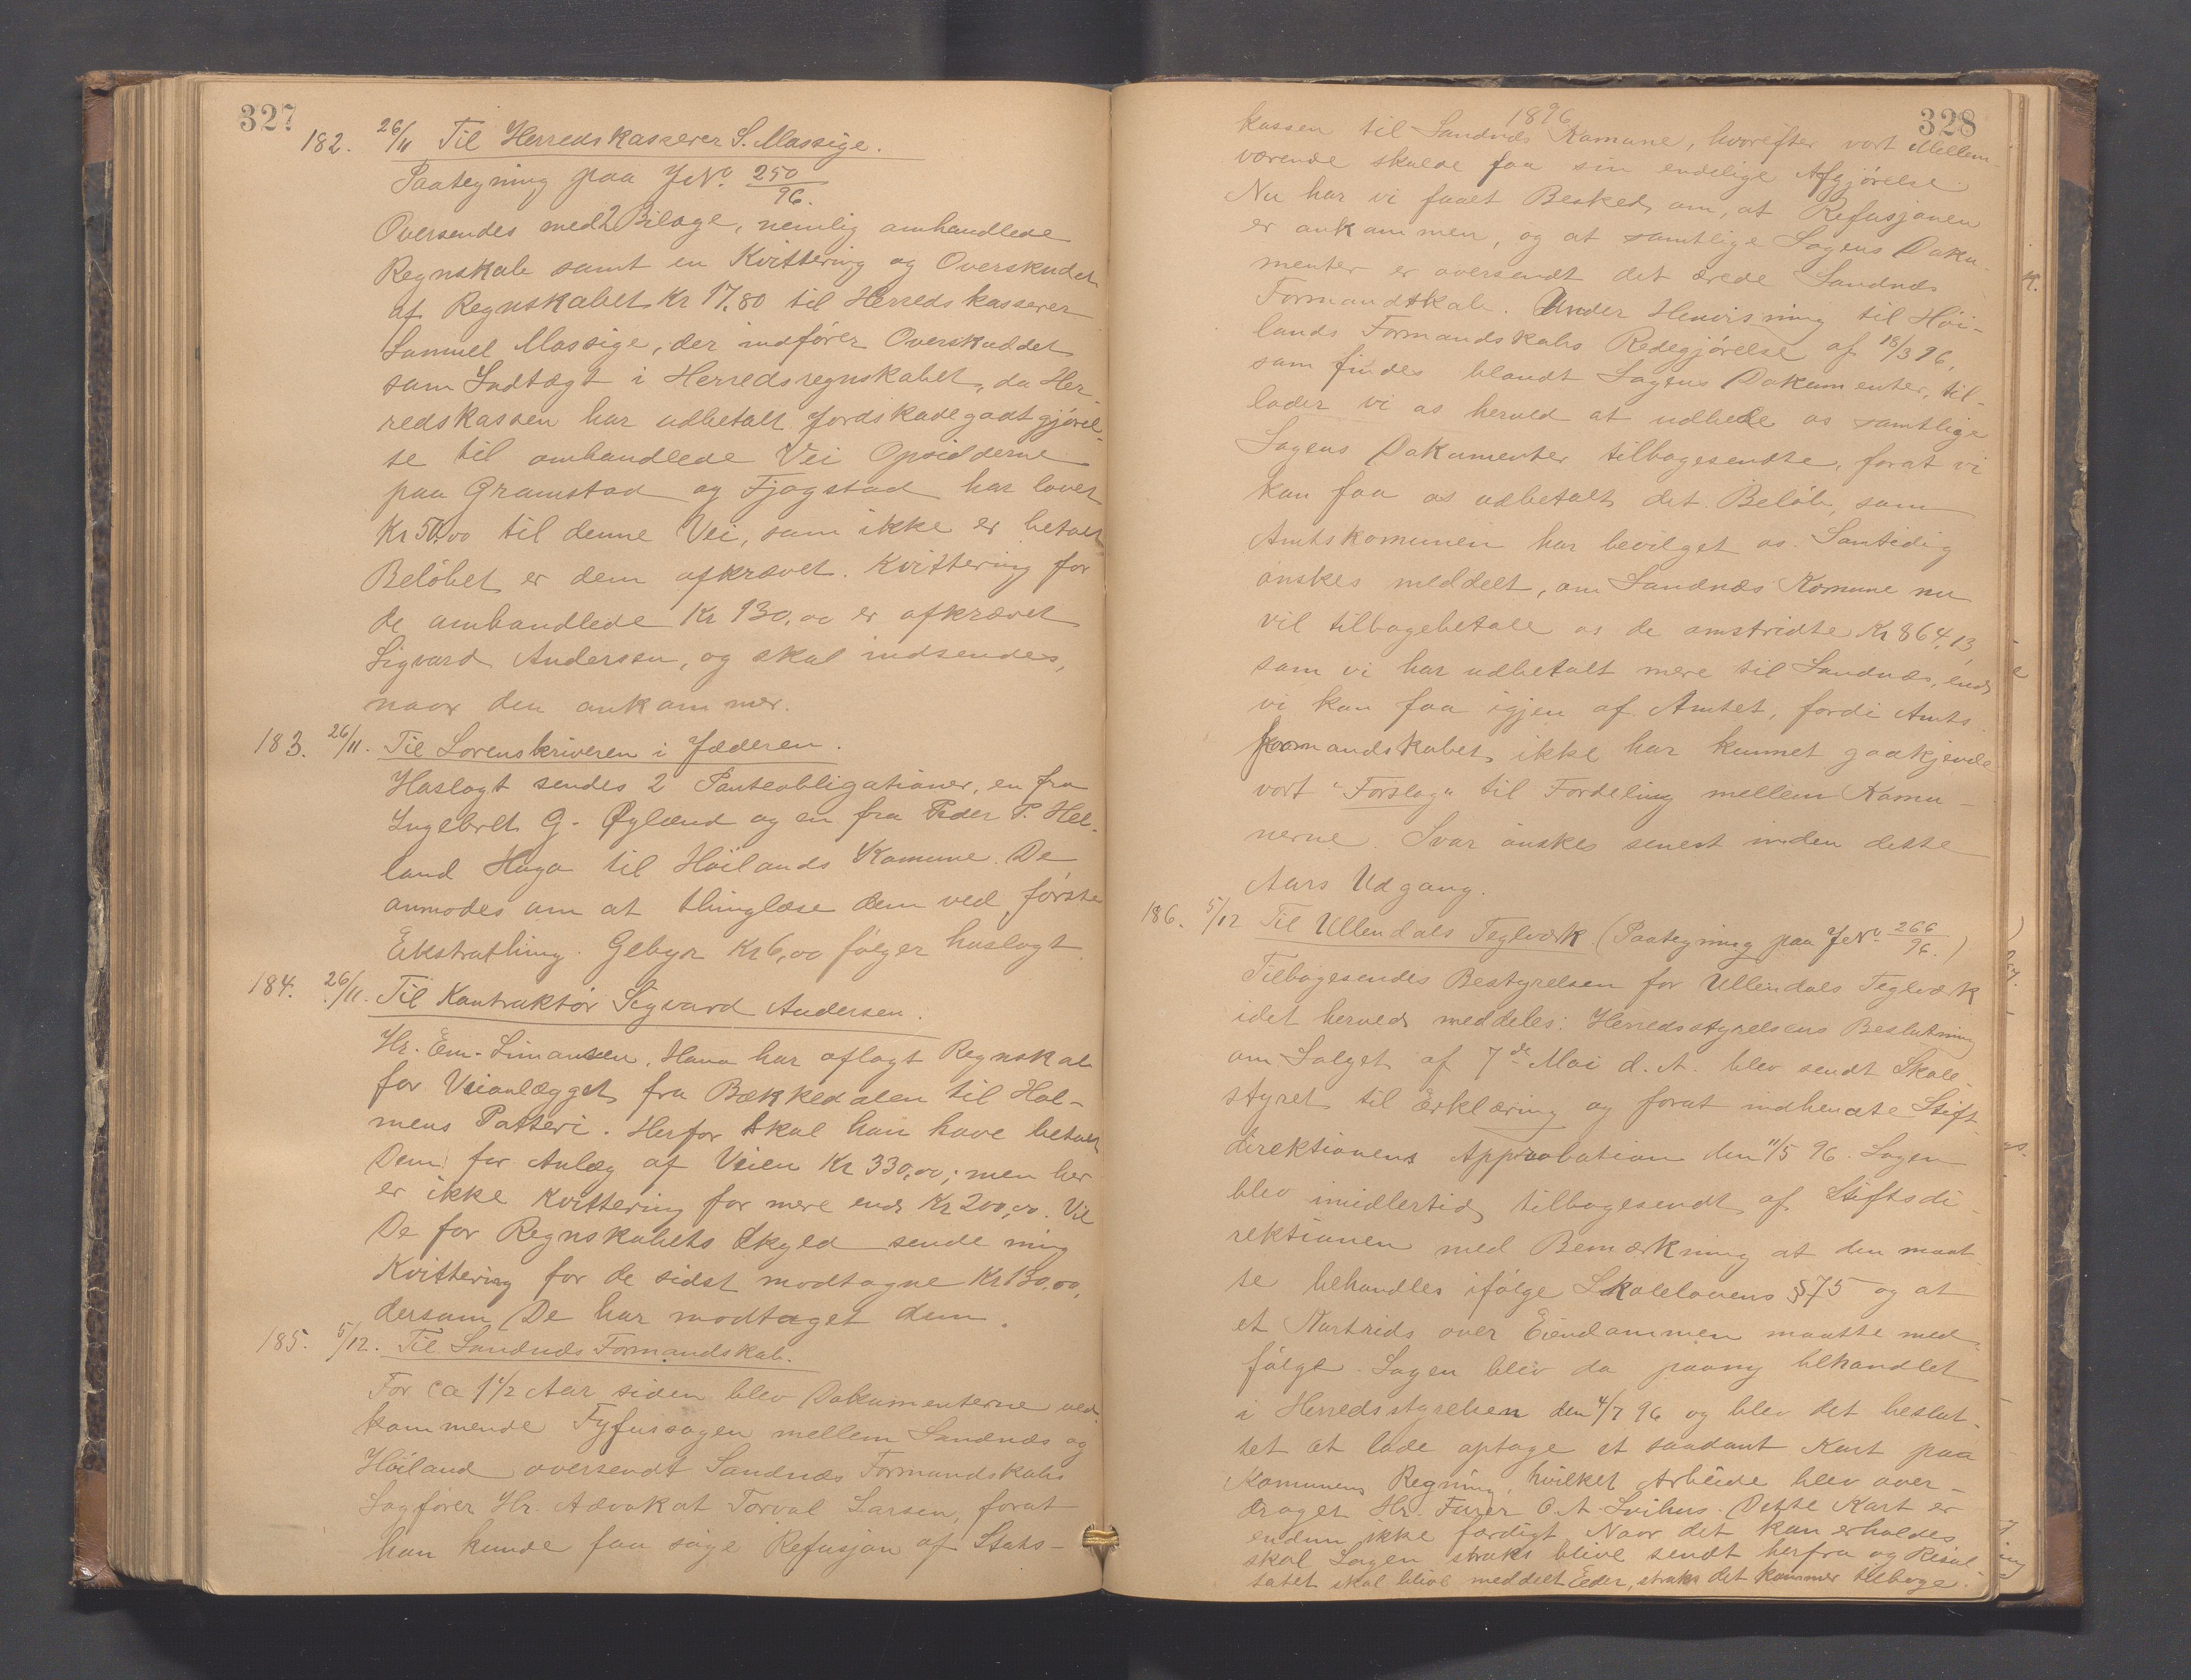 327
182. 26/11 Til Herredskasserer S. Massige.
Paategning paa J.No. 250/96.
Oversendes med 2 Bilage, nemlig omhandlede
Regnskab samt en Kvittering og Overskudet
af Regnskabet Kr 17.80 til Herredskasserer
Samuel Massige, der indfører Overskuddet
som Indtægt i Herredsregnskabet, da Her-
redskassen har udbetalt Jordskadegodtgjørel-
se til omhandlede Vei Opsidderne
paa Gramstad og Fjogstad har lovet
Kr 50,00 til denne Vei, som ikke er betalt
Beløbet er dem afkrævet. Kvittering for
de omhandlede Kr 130,00 er afkrævet
Sigvard Andersen, og skal indsendes,
naar den ankommer.
183. 26/11. Til Sorenskriveren i Jæderen.
Hoslagt sendes 2 Panteobligationer, en fra
Ingebret G. Øglænd og en fra Peder P. Hel-
land Hage til Høilands Komune. De
anmodes om at thinglæse dem ved første
Ekstrathing. Gebyr Kr 6,00 følger hoslagt.
184. 26/11. Til Kontraktør Sigvard Andersen.
Hr. Em. Simonsen, Hana har aflagt Regnskab
for Veianlægget fra Bækkedalen til Hol-
mens Patteri. Herfor skal han have betalt
Dem for Anlæg af Veien Kr 330,00; men her
er ikke Kvittering for mere end Kr 200,00. Vil
De for Regnskabets Skyld sende mig
Kvittering for de sidst modtagne Kr 130,00,
dersom De har modtaget dem.
185. 5/12. Til Sandnæs Formandskab.
For ca 1 1/2 Aar siden blev Dokumenterne ved-
kommende Tyfussagen mellem Sandnæs og
Høiland oversendt Sandnæs Formandskabs
Sagfører Hr. Advokat Torval Larsen, forat
han kunde faa søge Refusjon af Stats-
1896
328
kassen til Sandnæs Komune, hvorefter vort Mellem-
værende skulde faa sin endelige Afgjørelse.
Nu har vi faaet Besked om, at Refusjonen
er ankommen, og at samtlige Sagens Doku-
menter er oversendt det ærede Sandnæs
Formandskab. Under Henvisning til Høi-
lands Formandskabs Redegjørelse af 18/3 96,
som findes blandt Sagens Dokumenter, til-
lader vi os herved at udbede os samtlige
Sagens Dokumenter tilbagesendte, forat vi
kan faa os udbetalt det Beløb, som
Amtskomunen har bevilget os. Samtidig
ønskes meddelt, om Sandnæs Komune nu
vil tilbagebetale os de omstridte Kr 864,13,
som vi har udbetalt mere til Sandnæs, end
vi kan faa igjen af Amtet, fordi Amts
formandskabet ikke har kunnet godkjende
vort "Forslag" til Fordeling mellem Komu-
nerne. Svar ønskes senest inden dette
Aars Udgang.
186. 5/12 Til Ullendals Teglværk. (Paategning paa J.No. 266/96.)
Tilbagesendes Bestyrelsen for Ullendals Teglværk
idet herved meddeles: Herredsstyrelsens Beslutning
om Salget af 7de Mai d. A. blev sendt Skole-
styret til Erklæring og forat indhente Stift-
direktionens Approbation den 11/5 96. Sagen
blev imidlertid tilbagesendt af Stiftsdi-
rektionen med Bemærkning at den maat-
te behandles ifølge Skolelovens § 75 og at
et Kartrids over Eiendommen maatte med-
følge. Sagen blev da paany behandlet
i Herredsstyrelsen den 4/7 96 og blev det beslut-
tet at lade optage et saadant Kart paa
Komunens Regning, hvilket Arbeide blev over-
draget Hr. Furer O. A. Svihus. Dette Kart er
endnu ikke færdigt. Naar det kan erholdes
skal Sagen straks blive sendt herfra og Resul-
tatet skal blive meddelt Eder, straks det kommer tilbage.